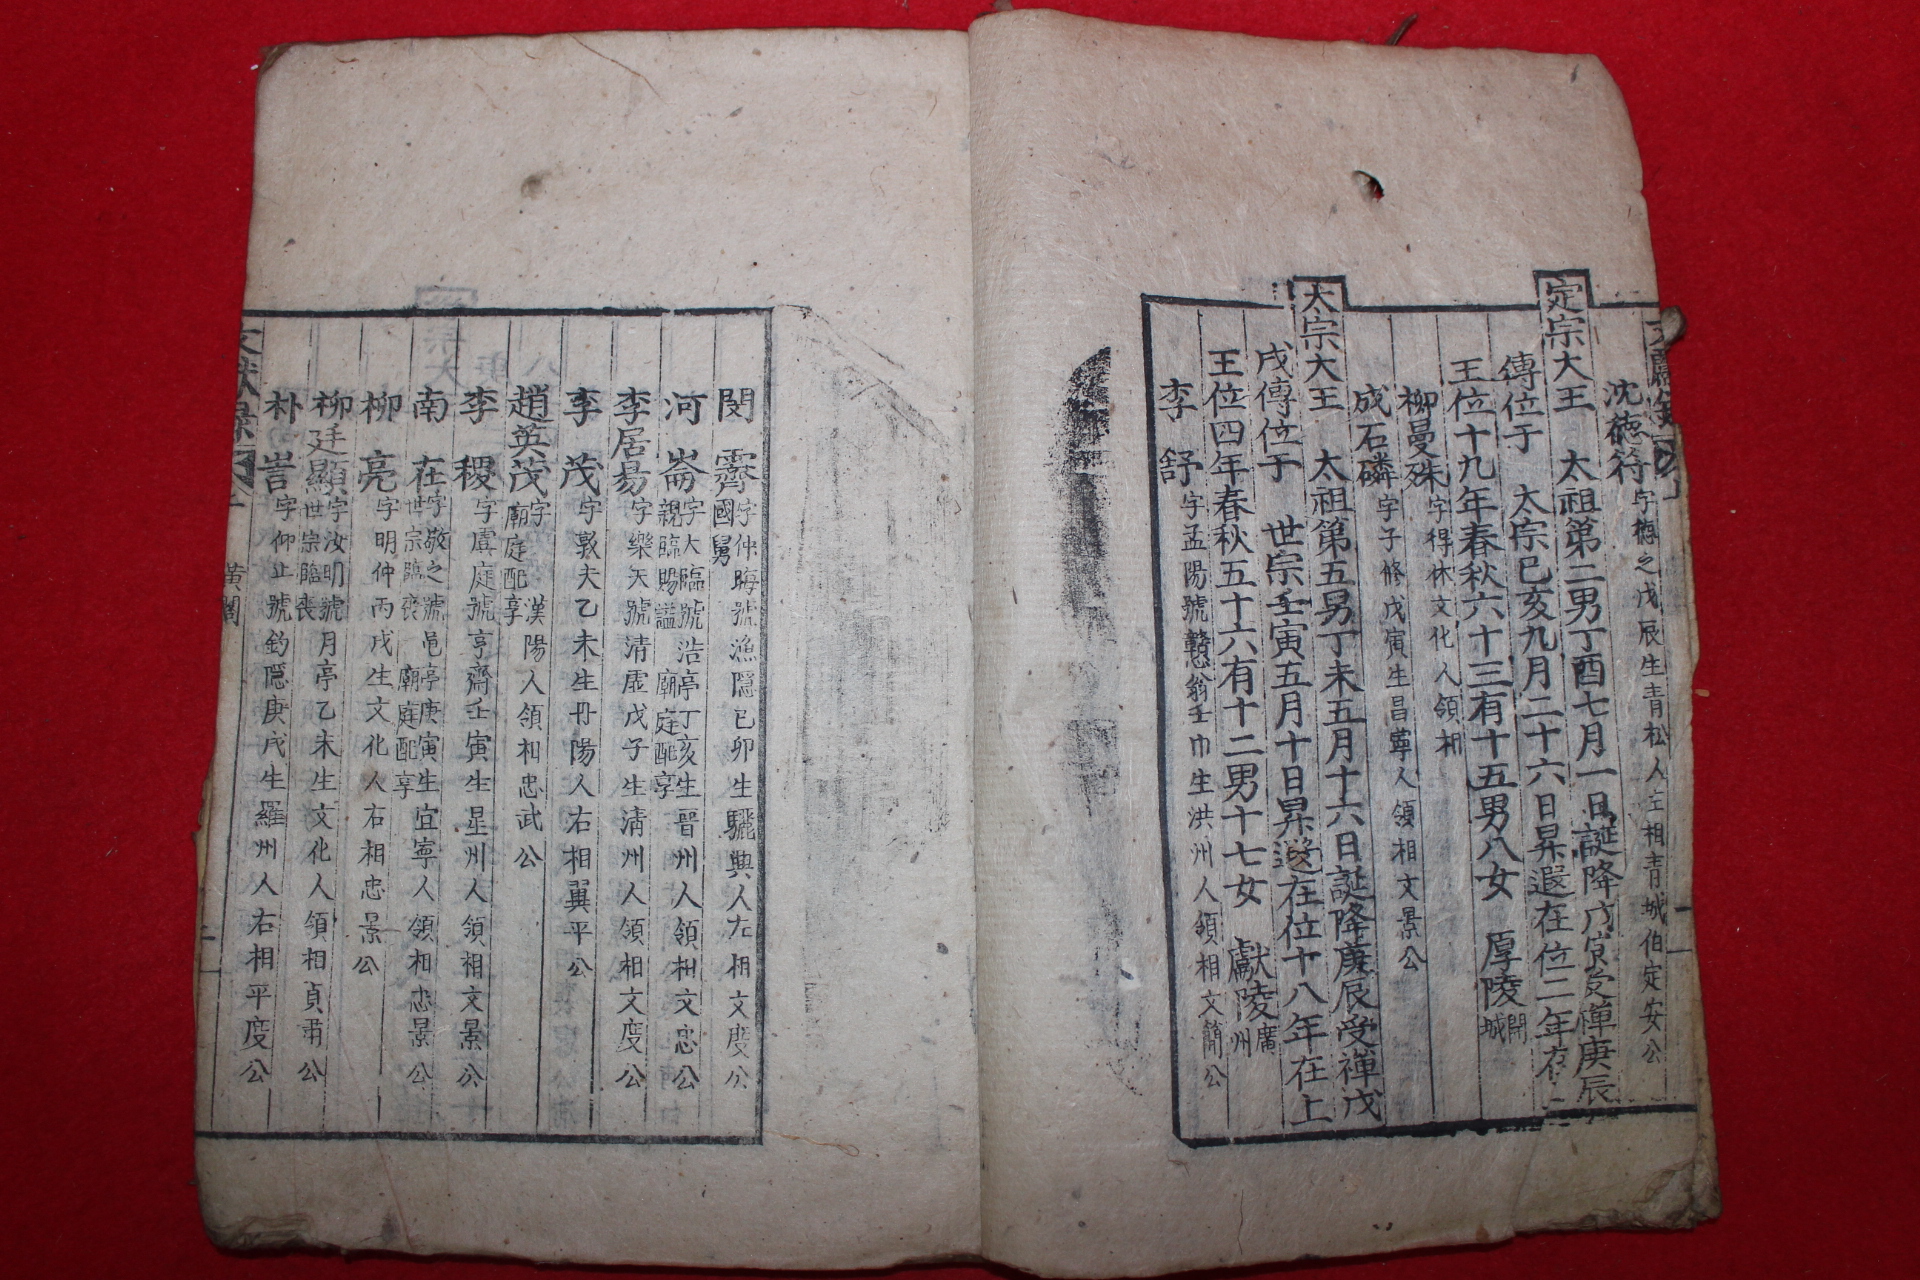 沈德符字梅之戊辰生青松人左相青城伯定安公
定宗大王 太祖第二男丁酉七月一日誕降戊寅受禪庚辰
傳位于 太宗己亥九月二十六日昇遐在位二年在上
王位十九年春秋六十三有十五男八女 厚陵開城
柳曼殊字得休文化人領相
成石磷字子修戊寅生昌寧人領相文景公
太宗大王 太祖第五男丁未五月十六日誕降庚辰受禪戊
戌傳位于 世宗壬寅五月十日昇遐在位十八年在上
王位四年春秋五十六有十二男十七女 獻陵廣州
李舒字孟陽號戇翁壬巾生洪州人領相文簡公
閔霽字仲晦號漁隱己卯生驪興人左相文度公
國舅
河崙字大臨號浩亭丁亥生晉州人領相文忠公
親臨賜謚 廟庭配享
李居易字樂天號清虛戊子生清州人領相文度公
李茂字敦夫乙未生丹陽人右相翼平公
趙英茂字 漢陽人領相忠武公
廟庭配享
李稷字虞庭號亨齋壬寅生星州人領相文景公
南在字敬之號亀亭庚寅生宜寧人領相忠景公
世宗臨喪 廟庭配享
柳亮字明仲丙戌生文化人右相忠景公
柳廷顯字汝明號月亭乙未生文化人領相貞肅公
世宗臨喪
朴訔字仰止號釣隱庚戌生羅州人右相平度公
文獻錄 上 黃閣 二